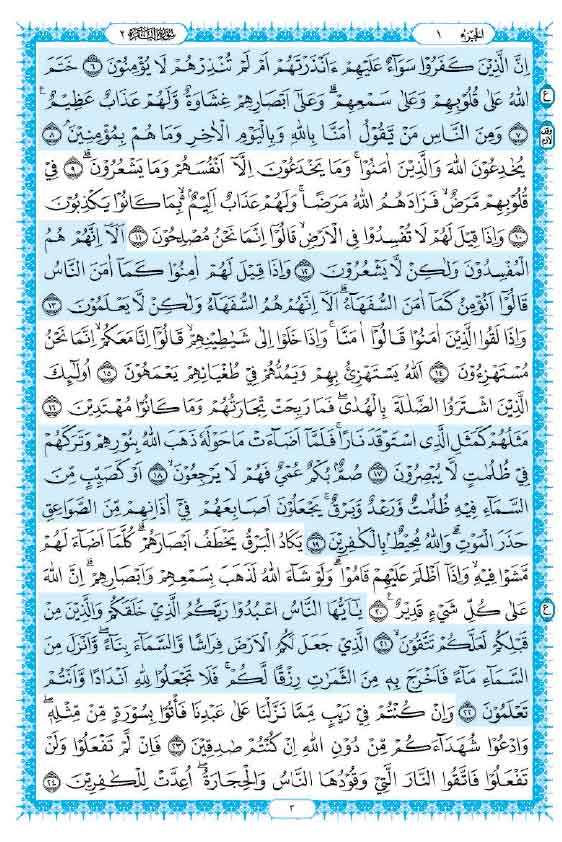 سورة البقرة ٢ الجزء ١
اِنَّ الَّذِيْنَ كَفَرُوْا سَوَآءٌ عَلَيْهِمْ ءَاَنْذَرْتَهُمْ اَمْ لَمْ تُنْذِرْهُمْ لَا يُؤْمِنُوْنَ ۝٦ خَتَمَ
اللهُ عَلٰى قُلُوْبِهِمْ وَعَلٰى سَمْعِهِمْ ۗ وَعَلٰٓى اَبْصَارِهِمْ غِشَاوَةٌ وَّلَهُمْ عَذَابٌ عَظِيْمٌ
۝٧ وَمِنَ النَّاسِ مَنْ يَّقُوْلُ اٰمَنَّا بِاللهِ وَبِالْيَوْمِ الْاٰخِرِ وَمَا هُمْ بِمُؤْمِنِيْنَ ۝٨
يُخٰدِعُوْنَ اللهَ وَالَّذِيْنَ اٰمَنُوْا ۚ وَمَا يَخْدَعُوْنَ اِلَّآ اَنْفُسَهُمْ وَمَا يَشْعُرُوْنَ ۝٩ فِيْ
قُلُوْبِهِمْ مَّرَضٌ ۙ فَزَادَهُمُ اللهُ مَرَضًا ۚ وَلَهُمْ عَذَابٌ اَلِيْمٌ ۢ بِمَا كَانُوْا يَكْذِبُوْنَ
۝١٠ وَاِذَا قِيْلَ لَهُمْ لَا تُفْسِدُوْا فِي الْاَرْضِ ۙ قَالُوْٓا اِنَّمَا نَحْنُ مُصْلِحُوْنَ ۝١١ اَلَآ اِنَّهُمْ هُمُ
الْمُفْسِدُوْنَ وَلٰكِنْ لَّا يَشْعُرُوْنَ ۝١٢ وَاِذَا قِيْلَ لَهُمْ اٰمِنُوْا كَمَآ اٰمَنَ النَّاسُ
قَالُوْٓا اَنُؤْمِنُ كَمَآ اٰمَنَ السُّفَهَآءُ ۗ اَلَآ اِنَّهُمْ هُمُ السُّفَهَآءُ وَلٰكِنْ لَّا يَعْلَمُوْنَ ۝١٣
وَاِذَا لَقُوا الَّذِيْنَ اٰمَنُوْا قَالُوْٓا اٰمَنَّا ۚ وَاِذَا خَلَوْا اِلٰى شَيٰطِيْنِهِمْ ۙ قَالُوْٓا اِنَّا مَعَكُمْ ۙ اِنَّمَا نَحْنُ
مُسْتَهْزِءُوْنَ ۝١٤ اَللهُ يَسْتَهْزِئُ بِهِمْ وَيَمُدُّهُمْ فِيْ طُغْيَانِهِمْ يَعْمَهُوْنَ ۝١٥ اُولٰٓئِكَ
الَّذِيْنَ اشْتَرَوُا الضَّلٰلَةَ بِالْهُدٰى ۠ فَمَا رَبِحَتْ تِّجَارَتُهُمْ وَمَا كَانُوْا مُهْتَدِيْنَ ۝١٦
مَثَلُهُمْ كَمَثَلِ الَّذِى اسْتَوْقَدَ نَارًا ۚ فَلَمَّآ اَضَآءَتْ مَا حَوْلَهٗ ذَهَبَ اللهُ بِنُوْرِهِمْ وَتَرَكَهُمْ
فِيْ ظُلُمٰتٍ لَّا يُبْصِرُوْنَ ۝١٧ صُمٌّۢ بُكْمٌ عُمْيٌ فَهُمْ لَا يَرْجِعُوْنَ ۙ ۝١٨ اَوْ كَصَيِّبٍ مِّنَ
السَّمَآءِ فِيْهِ ظُلُمٰتٌ وَّرَعْدٌ وَّبَرْقٌ ۚ يَجْعَلُوْنَ اَصَابِعَهُمْ فِيْٓ اٰذَانِهِمْ مِّنَ الصَّوَاعِقِ
حَذَرَ الْمَوْتِ ۗ وَاللهُ مُحِيْطٌۢ بِالْكٰفِرِيْنَ ۝١٩ يَكَادُ الْبَرْقُ يَخْطَفُ اَبْصَارَهُمْ ۗ كُلَّمَآ اَضَآءَ لَهُمْ
مَّشَوْا فِيْهِ ۙ وَاِذَآ اَظْلَمَ عَلَيْهِمْ قَامُوْا ۗ وَلَوْ شَآءَ اللهُ لَذَهَبَ بِسَمْعِهِمْ وَاَبْصَارِهِمْ ۗ اِنَّ اللهَ
عَلٰى كُلِّ شَيْءٍ قَدِيْرٌ ۝٢٠ يٰٓاَيُّهَا النَّاسُ اعْبُدُوْا رَبَّكُمُ الَّذِيْ خَلَقَكُمْ وَالَّذِيْنَ مِنْ
قَبْلِكُمْ لَعَلَّكُمْ تَتَّقُوْنَ ۙ ۝٢١ الَّذِيْ جَعَلَ لَكُمُ الْاَرْضَ فِرَاشًا وَّالسَّمَآءَ بِنَآءً ۖ وَّاَنْزَلَ مِنَ
السَّمَآءِ مَآءً فَاَخْرَجَ بِهٖ مِنَ الثَّمَرٰتِ رِزْقًا لَّكُمْ ۚ فَلَا تَجْعَلُوْا لِلّٰهِ اَنْدَادًا وَّاَنْتُمْ
تَعْلَمُوْنَ ۝٢٢ وَاِنْ كُنْتُمْ فِيْ رَيْبٍ مِّمَّا نَزَّلْنَا عَلٰى عَبْدِنَا فَأْتُوْا بِسُوْرَةٍ مِّنْ مِّثْلِهٖ ۖ
وَادْعُوْا شُهَدَآءَكُمْ مِّنْ دُوْنِ اللهِ اِنْ كُنْتُمْ صٰدِقِيْنَ ۝٢٣ فَاِنْ لَّمْ تَفْعَلُوْا وَلَنْ
تَفْعَلُوْا فَاتَّقُوا النَّارَ الَّتِيْ وَقُوْدُهَا النَّاسُ وَالْحِجَارَةُ ۖ اُعِدَّتْ لِلْكٰفِرِيْنَ ۝٢٤
ع
وقف لازم
ع
٣